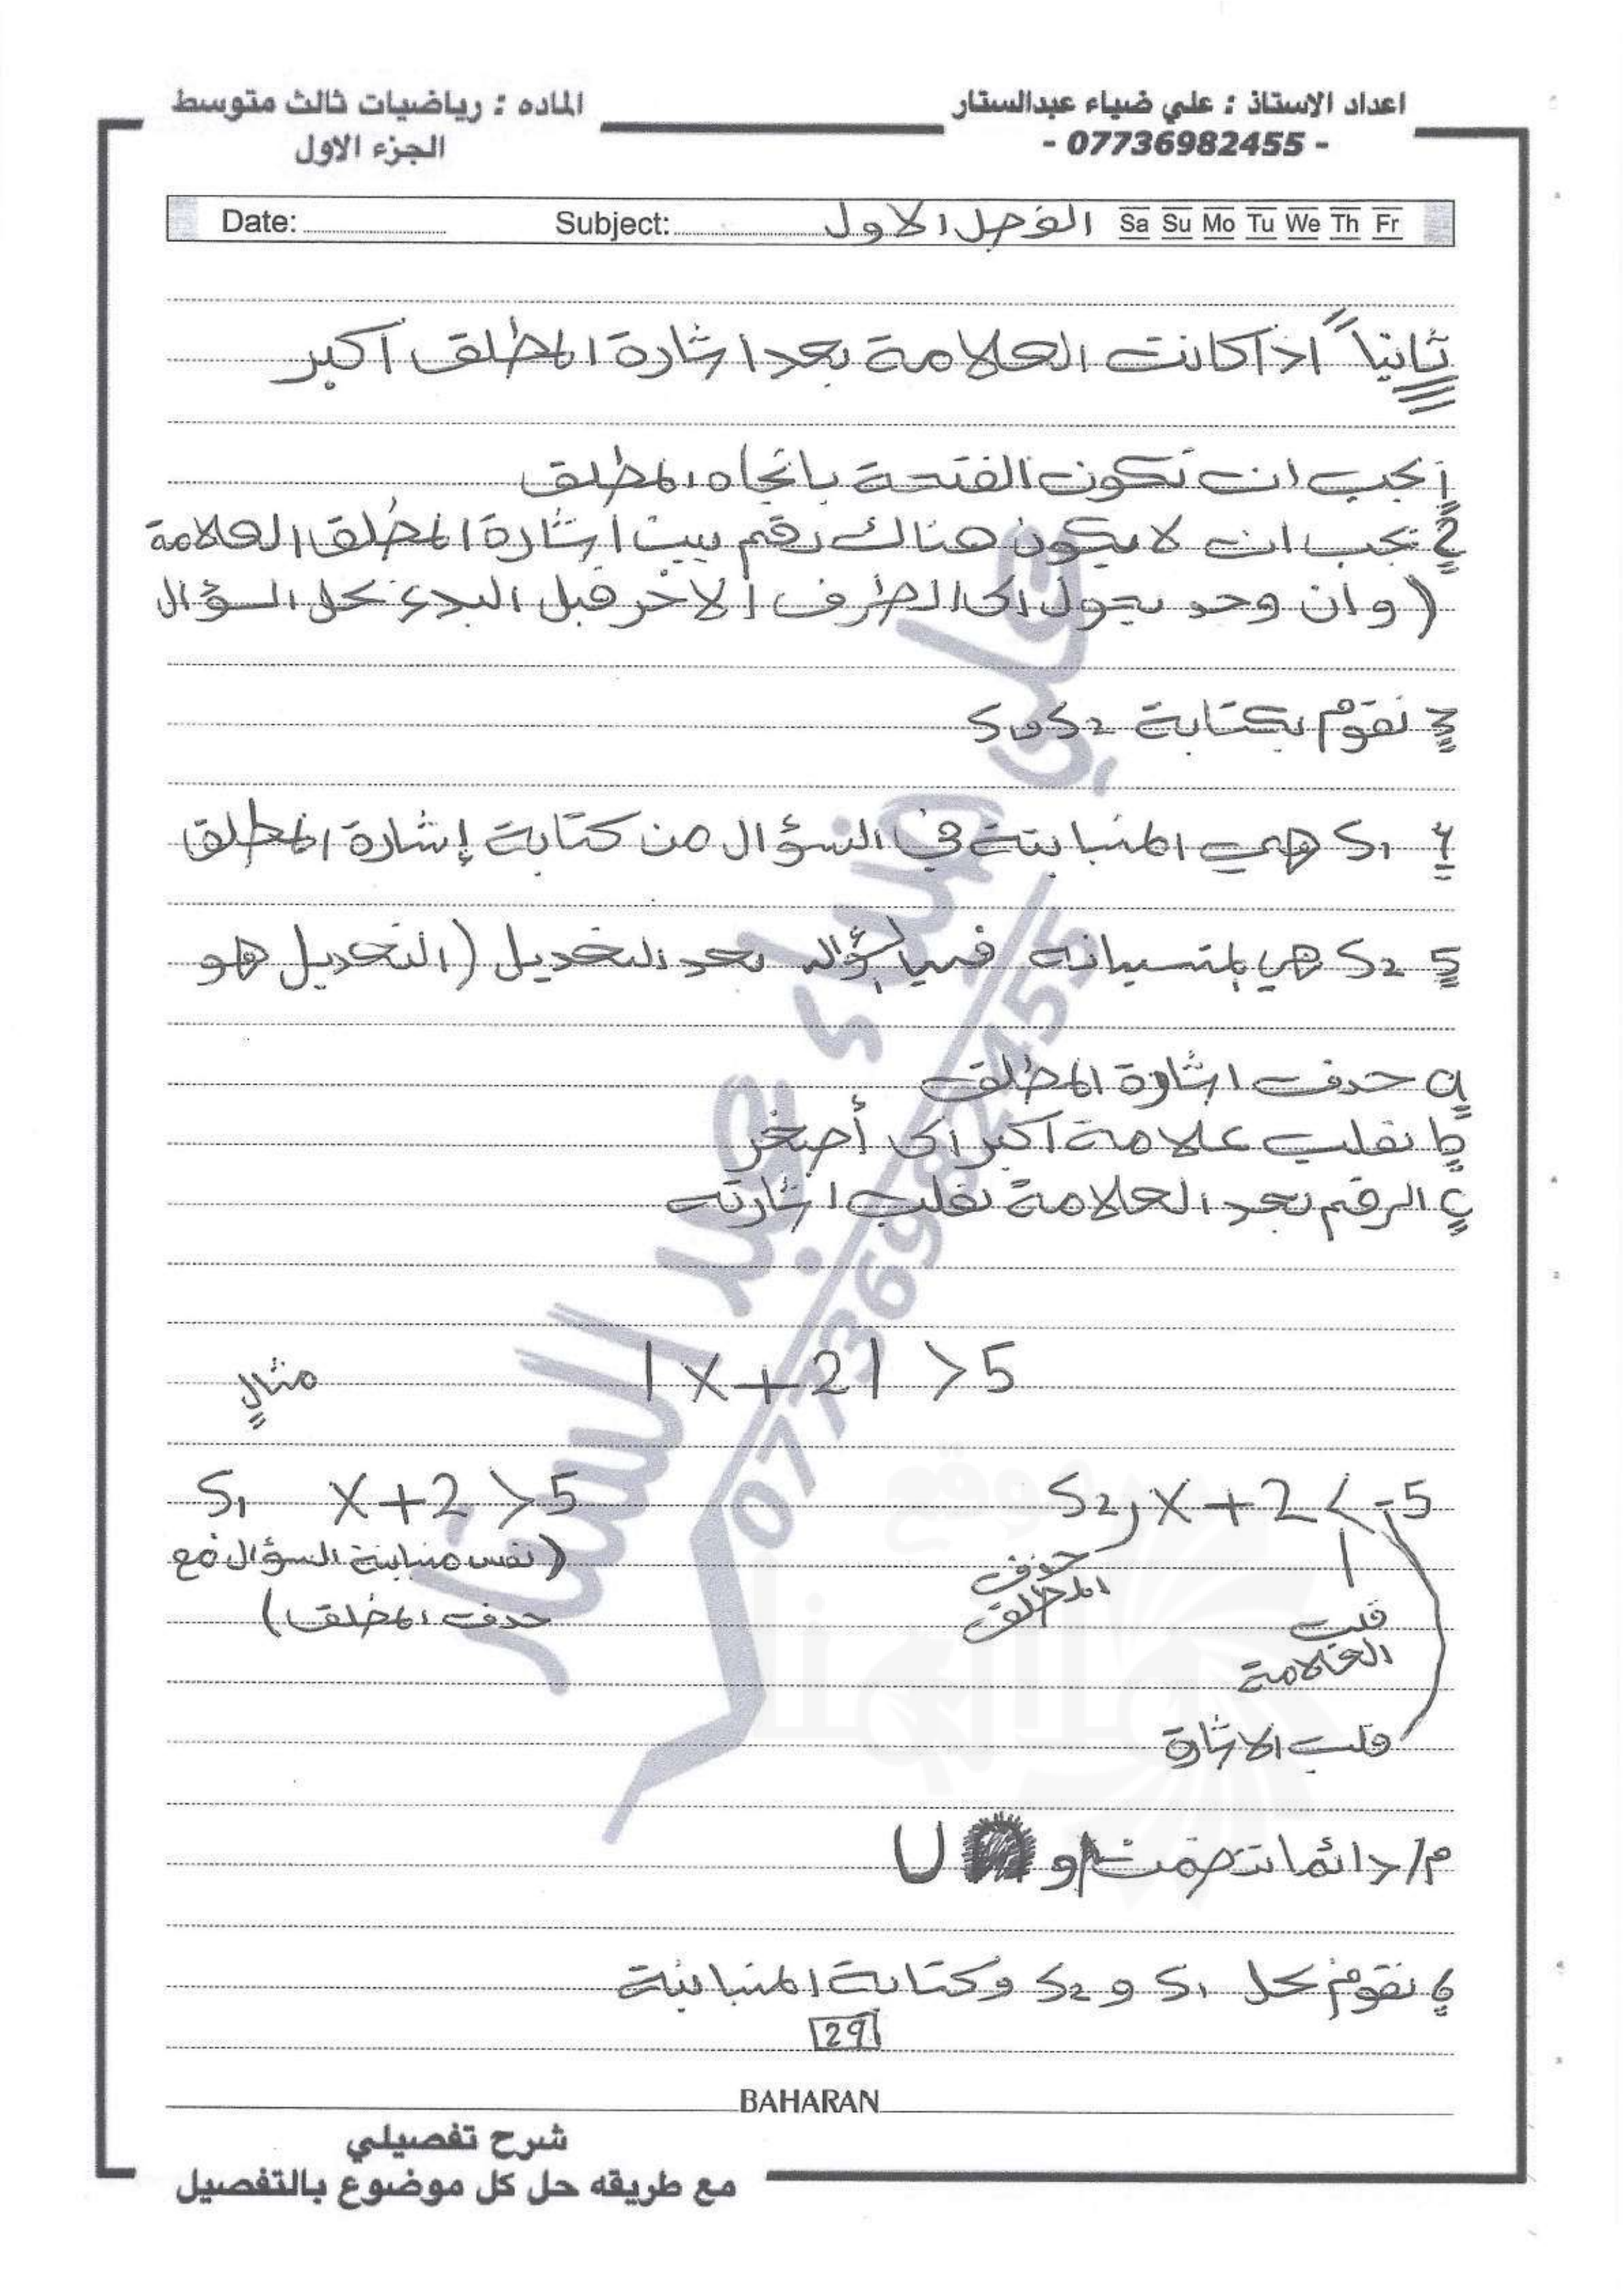 اعداد الاستاذ : علي ضياء عبدالستار
- 07736982455 -
الماده : رياضيات ثالث متوسط
الجزء الاول
Date: Subject: الفصل الاول Sa Su Mo Tu We Th Fr
ثانياً اذا كانت العلامة بعد اشارة المطلق اكبر
1 يجب ان تكون الفتحة باتجاه المطلق
2 يجب ان لا يكون هناك رقم بين اشارة المطلق العلامة
(وان وجد يحول الى الطرف الاخر قبل البدء بحل السؤال
3 نقوم بكتابة S1 و S2
4 S1 هي المتباينة في السؤال من كتابة إشارة المطلق
5 S2 هي المتباينة في السؤال بعد التعديل (التعديل هو
a حذف اشارة المطلق
b نقلب علامة اكبر الى أصغر
c الرقم بعد العلامة نقلب اشارته
مثال |x+2| >5
S1 x+2 >5
(نفس متباينة السؤال مع
حذف المطلق)
S2, x+2 < -5
حذف
المطلق
قلب
العلامة
قلب الاشارة
م/ دائما نضع و U
6 نقوم بحل S1 و S2 وكتابة المتباينة
29
BAHARAN
شرح تفصيلي
مع طريقه حل كل موضوع بالتفصيل
علي ضياء عبد الستار
07736982455
موقع